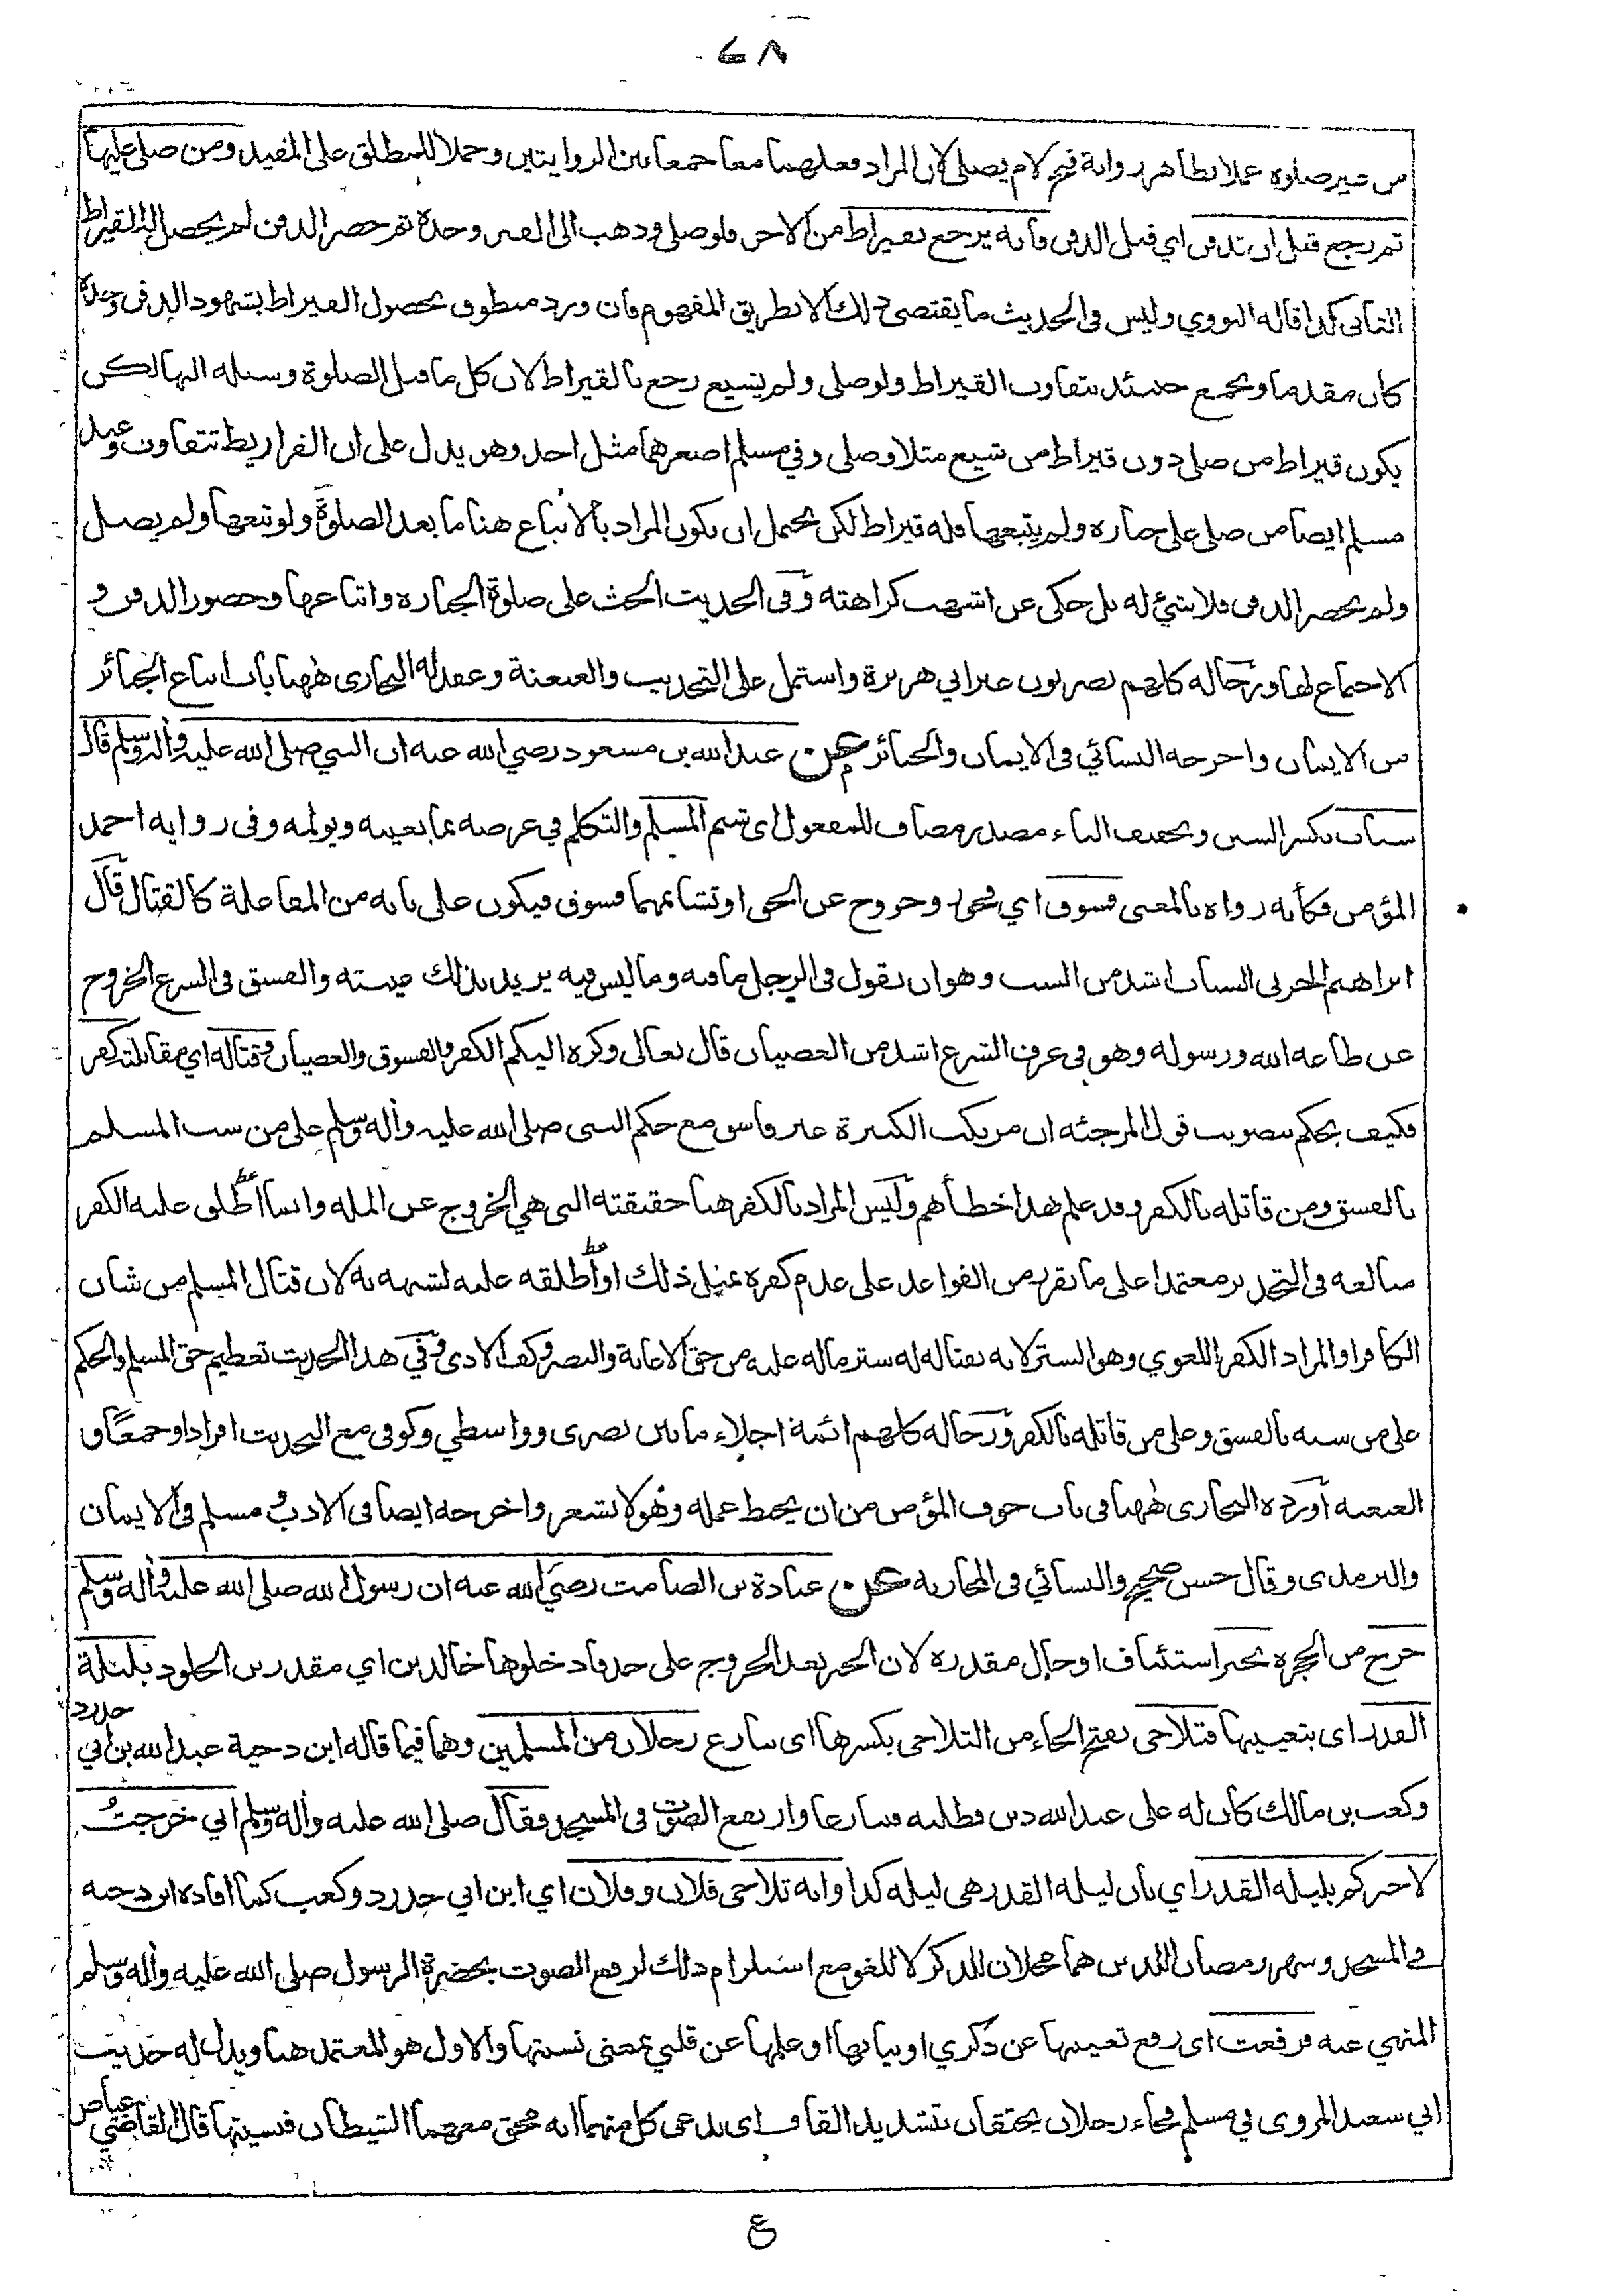 ٦٨
من غير صلوة عملا بظاهر رواية فتح لام يصلى لان المراد فعلهما معا جمعا بين الروايتين وحملا للمطلق على المقيد ومن صلى عليها
ثم رجع قبل ان تدفن اي قبل الدفن فانه يرجع بقيراط من الاجر فلو صلى وذهب الى القبر وحده ثم حضر الدفن لم يحصل له القيراط
الثانى كذا قاله النووي وليس في الحديث ما يقتضى ذلك الا بطريق المفهوم فان ورد منطوق بحصول القيراط بشهود الدفن وحده
كان مقدما ويجمع حينئذ بتفاوت القيراط ولو صلى ولم يتبع رجع بالقيراط لان كل ما قبل الصلوة وسيلة اليها لكن
يكون قيراط من صلى دون قيراط من تبع مثلا وصلى وفي مسلم اصغرهما مثل احد وهو يدل على ان القراريط تتفاوت وعند
مسلم ايضا من صلى على جنازه ولم يتبعها فله قيراط لكن يحتمل ان يكون المراد بالاتباع هنا ما بعد الصلوة ولو تبعها ولم يصل
ولم يحضر الدفن فلا شئ له بل حكى عن اشهب كراهته وفى الحديث الحث على صلوة الجنازه واتباعها وحضور الدفن و
الاجتماع لها ورجاله كلهم بصريون غير ابي هريرة واشتمل على التحديث والعنعنة وعقد له البخارى ههنا باب اتباع الجنائز
من الايمان واخرجه النسائي في الايمان والجنائز عن عبد الله بن مسعود رضي الله عنه ان النبي صلى الله عليه وآله وسلم قال
سباب بكسر السين وتخفيف الباء مصدر مضاف للمفعول اى شتم المسلم والتكلم في عرضه بما يعيبه ويولمه وفى رواية احمد
المؤمن فكأنه رواه بالمعنى فسوق اي فجور وخروج عن الحق او تشاتمهما فسوق فيكون على بابه من المفاعلة كالقتال قال
ابراهيم الحربى السباب اشد من السب وهو ان يقول في الرجل ما فيه وما ليس فيه يريد بذلك عيبته والفسق في الشرع الخروج
عن طاعة الله ورسوله وهو في عرف الشرع اشد من العصيان قال تعالى وكره اليكم الكفر والفسوق والعصيان وقتاله اي مقاتلته كفر
فكيف يحكم بتصويب قول المرجئه ان مرتكب الكبيرة غير فاسق مع حكم النبى صلى الله عليه وآله وسلم على من سب المسلم
بالفسق ومن قاتله بالكفر وقد علم هذا خطأهم وليس المراد بالكفر هنا حقيقته التى هي الخروج عن المله وانما اطلق عليه الكفر
مبالغه في التحذير معتمدا على ما تقرر من القواعد على عدم كفره بمثل ذلك او اطلقه عليه لشبهه به لان قتال المسلم من شان
الكافر او المراد الكفر اللغوي وهو الستر لانه بقتاله له ستر ماله عليه من حق الاعانة والنصر وكف الاذى وفي هذا الحديث تعظيم حق المسلم والحكم
على من سبه بالفسق وعلى من قاتله بالكفر ورجاله كلهم ائمة اجلاء ما بين بصرى وواسطي وكوفى مع التحديث افرادا وجمعا و
العنعنه اورده البخارى ههنا في باب خوف المؤمن من ان يحبط عمله وهو لا يشعر واخرجه ايضا في الادب ومسلم في الايمان
والترمذى وقال حسن صحيح والنسائي في المحاربه عن عبادة بن الصامت رضي الله عنه ان رسول الله صلى الله عليه وآله وسلم
خرج من الحجره يخبر استئناف او حال مقدره لان الخبر بعد الخروج على حد فادخلوها خالدين اي مقدرين الخلود بليلة
القدر اى بتعيينها فتلاحى بفتح الحاء من التلاحى بكسرها اى تنازع رجلان من المسلمين وهما فيما قاله ابن دحية عبد الله بن ابي حدرد
وكعب بن مالك كان له على عبد الله دين فطلبه فتنازعا وارتفع الصوت في المسجد فقال صلى الله عليه وآله وسلم اني خرجت
لاخبركم بليله القدر اي بان ليله القدر هى ليله كذا وانه تلاحى فلان وفلان اي ابن ابي حدرد وكعب كما افاده ابن دحيه
في المسجد وشهر رمضان اللذين هما محلان للذكر لا للغو مع استلزام ذلك لرفع الصوت بحضرة الرسول صلى الله عليه وآله وسلم
المنهي عنه فرفعت اى رفع تعيينها عن ذكري او بيانها او علمها عن قلبي بمعنى نسيتها والاول هو المعتمد هنا ويدل له حديث
ابي سعيد المروى في مسلم فجاء رجلان يحتقان بتشديد القاف اى يدعى كل منهما انه محق معهما الشيطان فنسيتها قال القاضي عياض
ع